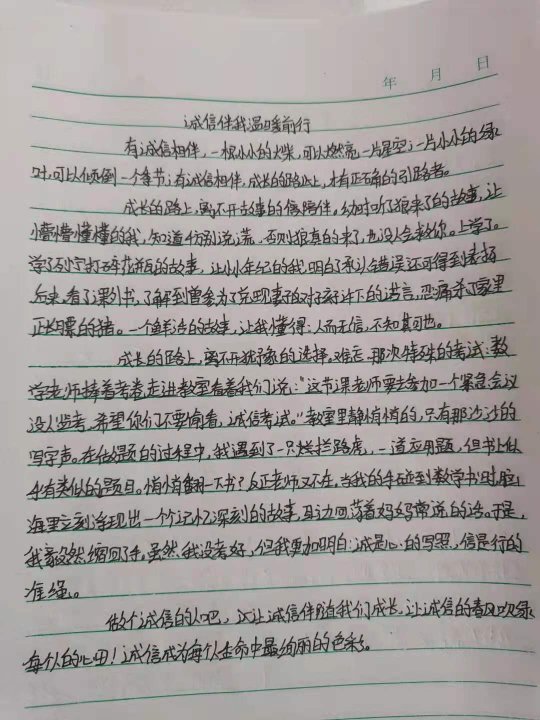 年 月 日
诚信伴我温暖前行
有诚信相伴,一根小小的火柴,可以燃亮一片星空;一片小小的绿
叶,可以倾倒一个季节;有诚信相伴,成长的路上,才有正确的引路者。
成长的路上,离不开故事的陪伴。幼时听了狼来了的故事,让
懵懵懂懂的我,知道切别说谎,否则狼真的来了,也没人会救你。上学了。
学了列宁打碎花瓶的故事,让小小年纪的我,明白了承认错误还可得到表扬
后来,看了课外书,了解到曾参为了兑现妻子对孩子许下的诺言,忍痛杀了家里
正长膘的猪。一个个鲜活的故事,让我懂得:人而无信,不知其可也。
成长的路上,离不开犹豫的选择。难忘,那次特殊的考试:数
学老师捧着考卷走进教室看着我们说:“这节课老师要去参加一个紧急会议
没人监考,希望你们不要偷看,诚信考试。”教室里静悄悄的,只有那沙沙的
写字声。在做题的过程中,我遇到了一只拦路虎,一道应用题,但书上似
乎有类似的题目。悄悄翻一下书?反正老师又不在,当我的手碰到数学书时,脑
海里立刻浮现出一个个记忆深刻的故事,耳边回荡着妈妈常说的话。于是,
我毅然缩回了手。虽然,我没考好,但我更加明白:诚是心的写照,信是行的
准绳。
做个诚信的人吧,让诚信伴随我们成长,让诚信的春风吹绿
每个人的心田!诚信成为每个生命中最绚丽的色彩。